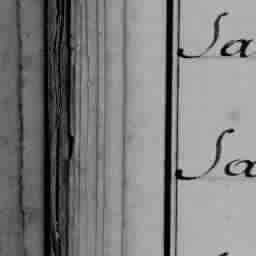 Sa
Sa